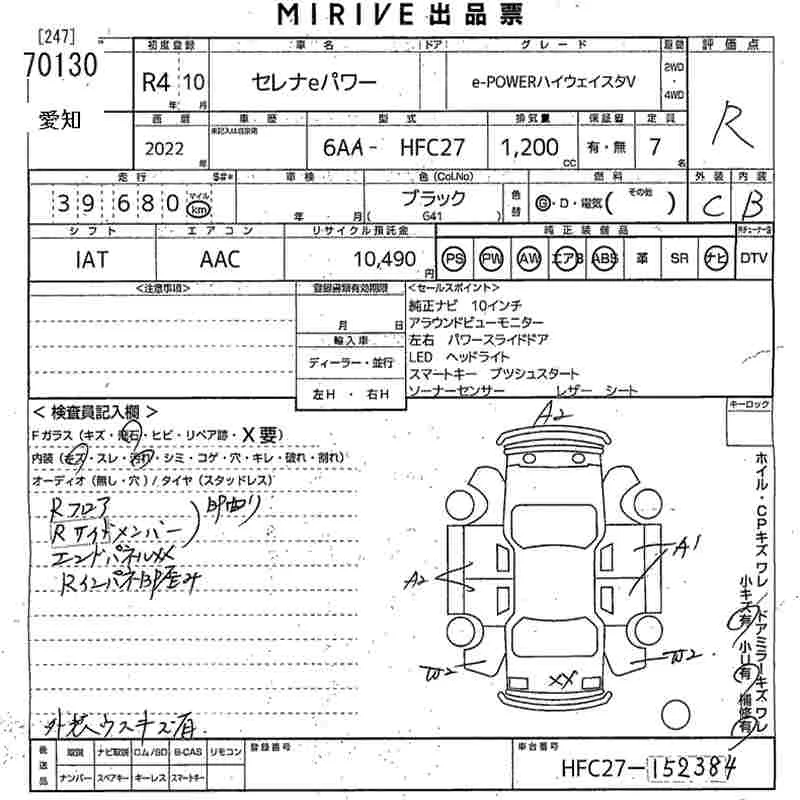 MIRIVE出品票
[247]
70130
愛知
初度登録 車名 ドア グレード 駆動 評価点
R4 10 年 月
セレナeパワー
e-POWERハイウェイスタV
2WD・4WD
R
車歴 型式 排気量 保証書 定員
2022 年
6AA- HFC27
1,200 CC
有・無
7 名
走行 車検 色(Col.No) 燃料 外装 内装
39680 マイル km
年 月
ブラック
(G41)
色替
G・D・電気( その他 )
C B
シフト エアコン リサイクル預託金 純正装備品
IAT AAC 10,490円
PS PW AW エアB ABS 革 SR ナビ DTV
<注意事項>
登録書類有効期限
月 日
輸入車
ディーラー・並行
左H・右H
<セールスポイント>
純正ナビ 10インチ
アラウンドビューモニター
左右 パワースライドドア
LED ヘッドライト
スマートキー プツシュスタート
ソーナーセンサー レザー シート
キーロック
<検査員記入欄>
Fガラス(キズ・飛石・ヒビ・リペア跡・X要)
内装(キズ・スレ・汚れ・シミ・コゲ・穴・キレ・破れ・割れ)
オーディオ(無し・穴)/タイヤ(スタッドレス)
Rフロア
Rサイドメンバー
エンドパネルXX
A2
A2
A1
W2
W2
XX
ホイル・CPキズワレ/ドアミラーキズワレ
小キズ有 小リ有 補修有
外装ウスキズ有.
後送品
取説 ナビ取説 ロム/SD B-CAS リモコン
ナンバー スペアキー キーレス スマートキー
登録番号
車台番号
HFC27-152384